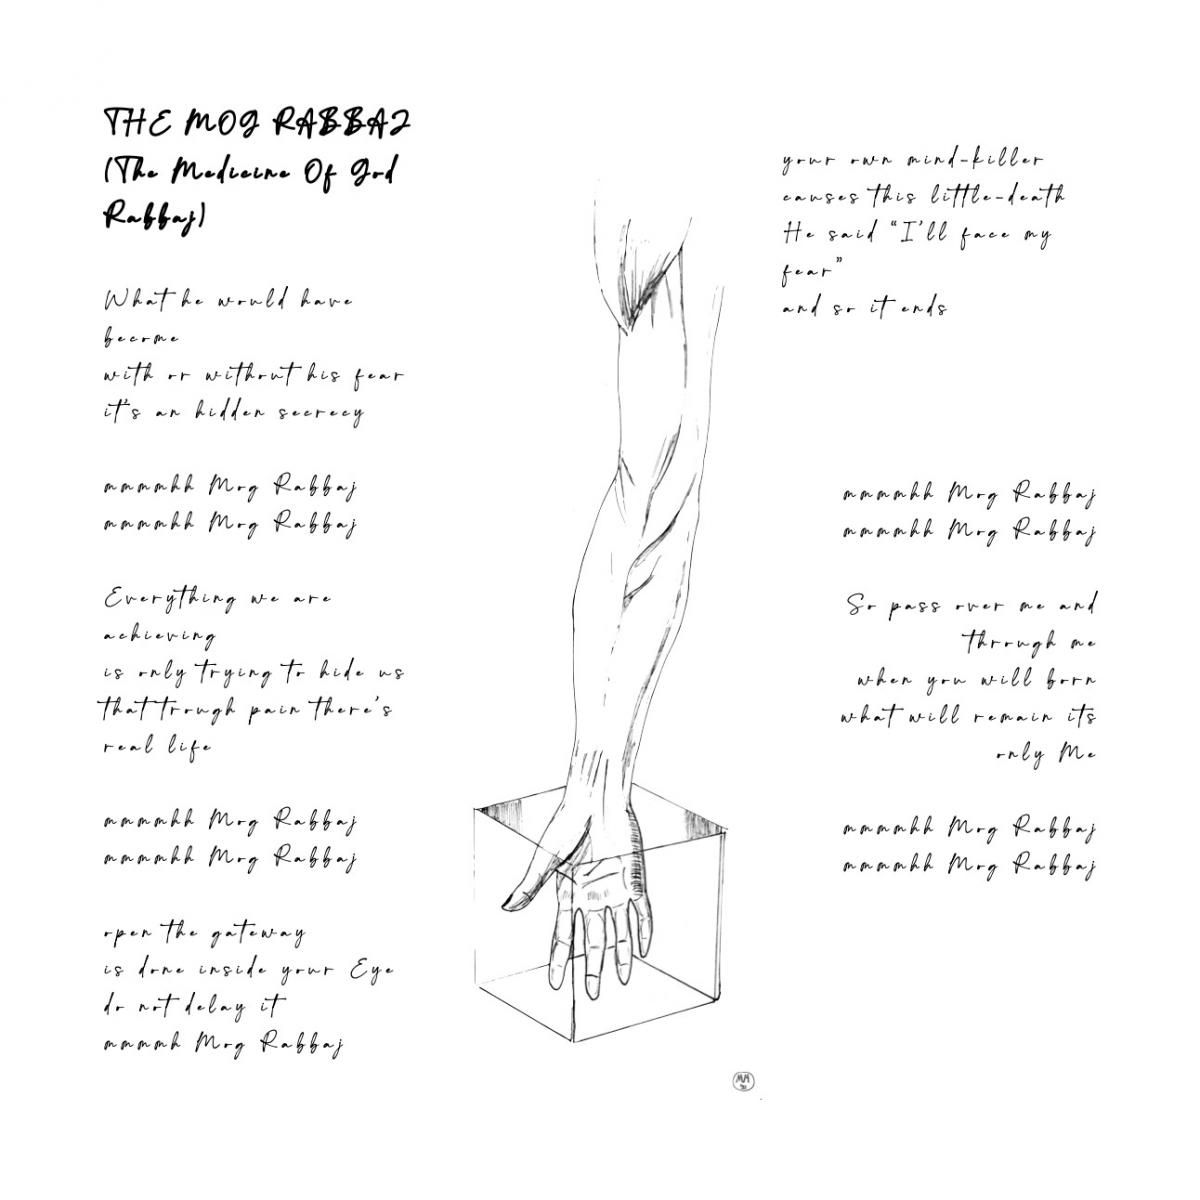 THE MOG RABBAJ
(The Medicine Of God
Rabbaj)
What he would have
become
with or without his fear
it's an hidden secrecy
mmmmhh Mog Rabbaj
mmmmhh Mog Rabbaj
Everything we are
achieving
is only trying to hide us
that trough pain there's
real life
mmmmhh Mog Rabbaj
mmmmhh Mog Rabbaj
open the gateway
is done inside your Eye
do not delay it
mmmmh Mog Rabbaj
your own mind-killer
causes this little-death
He said “I'll face my
fear”
and so it ends
mmmmhh Mog Rabbaj
mmmmhh Mog Rabbaj
So pass over me and
through me
when you will born
what will remain its
only Me
mmmmhh Mog Rabbaj
mmmmhh Mog Rabbaj